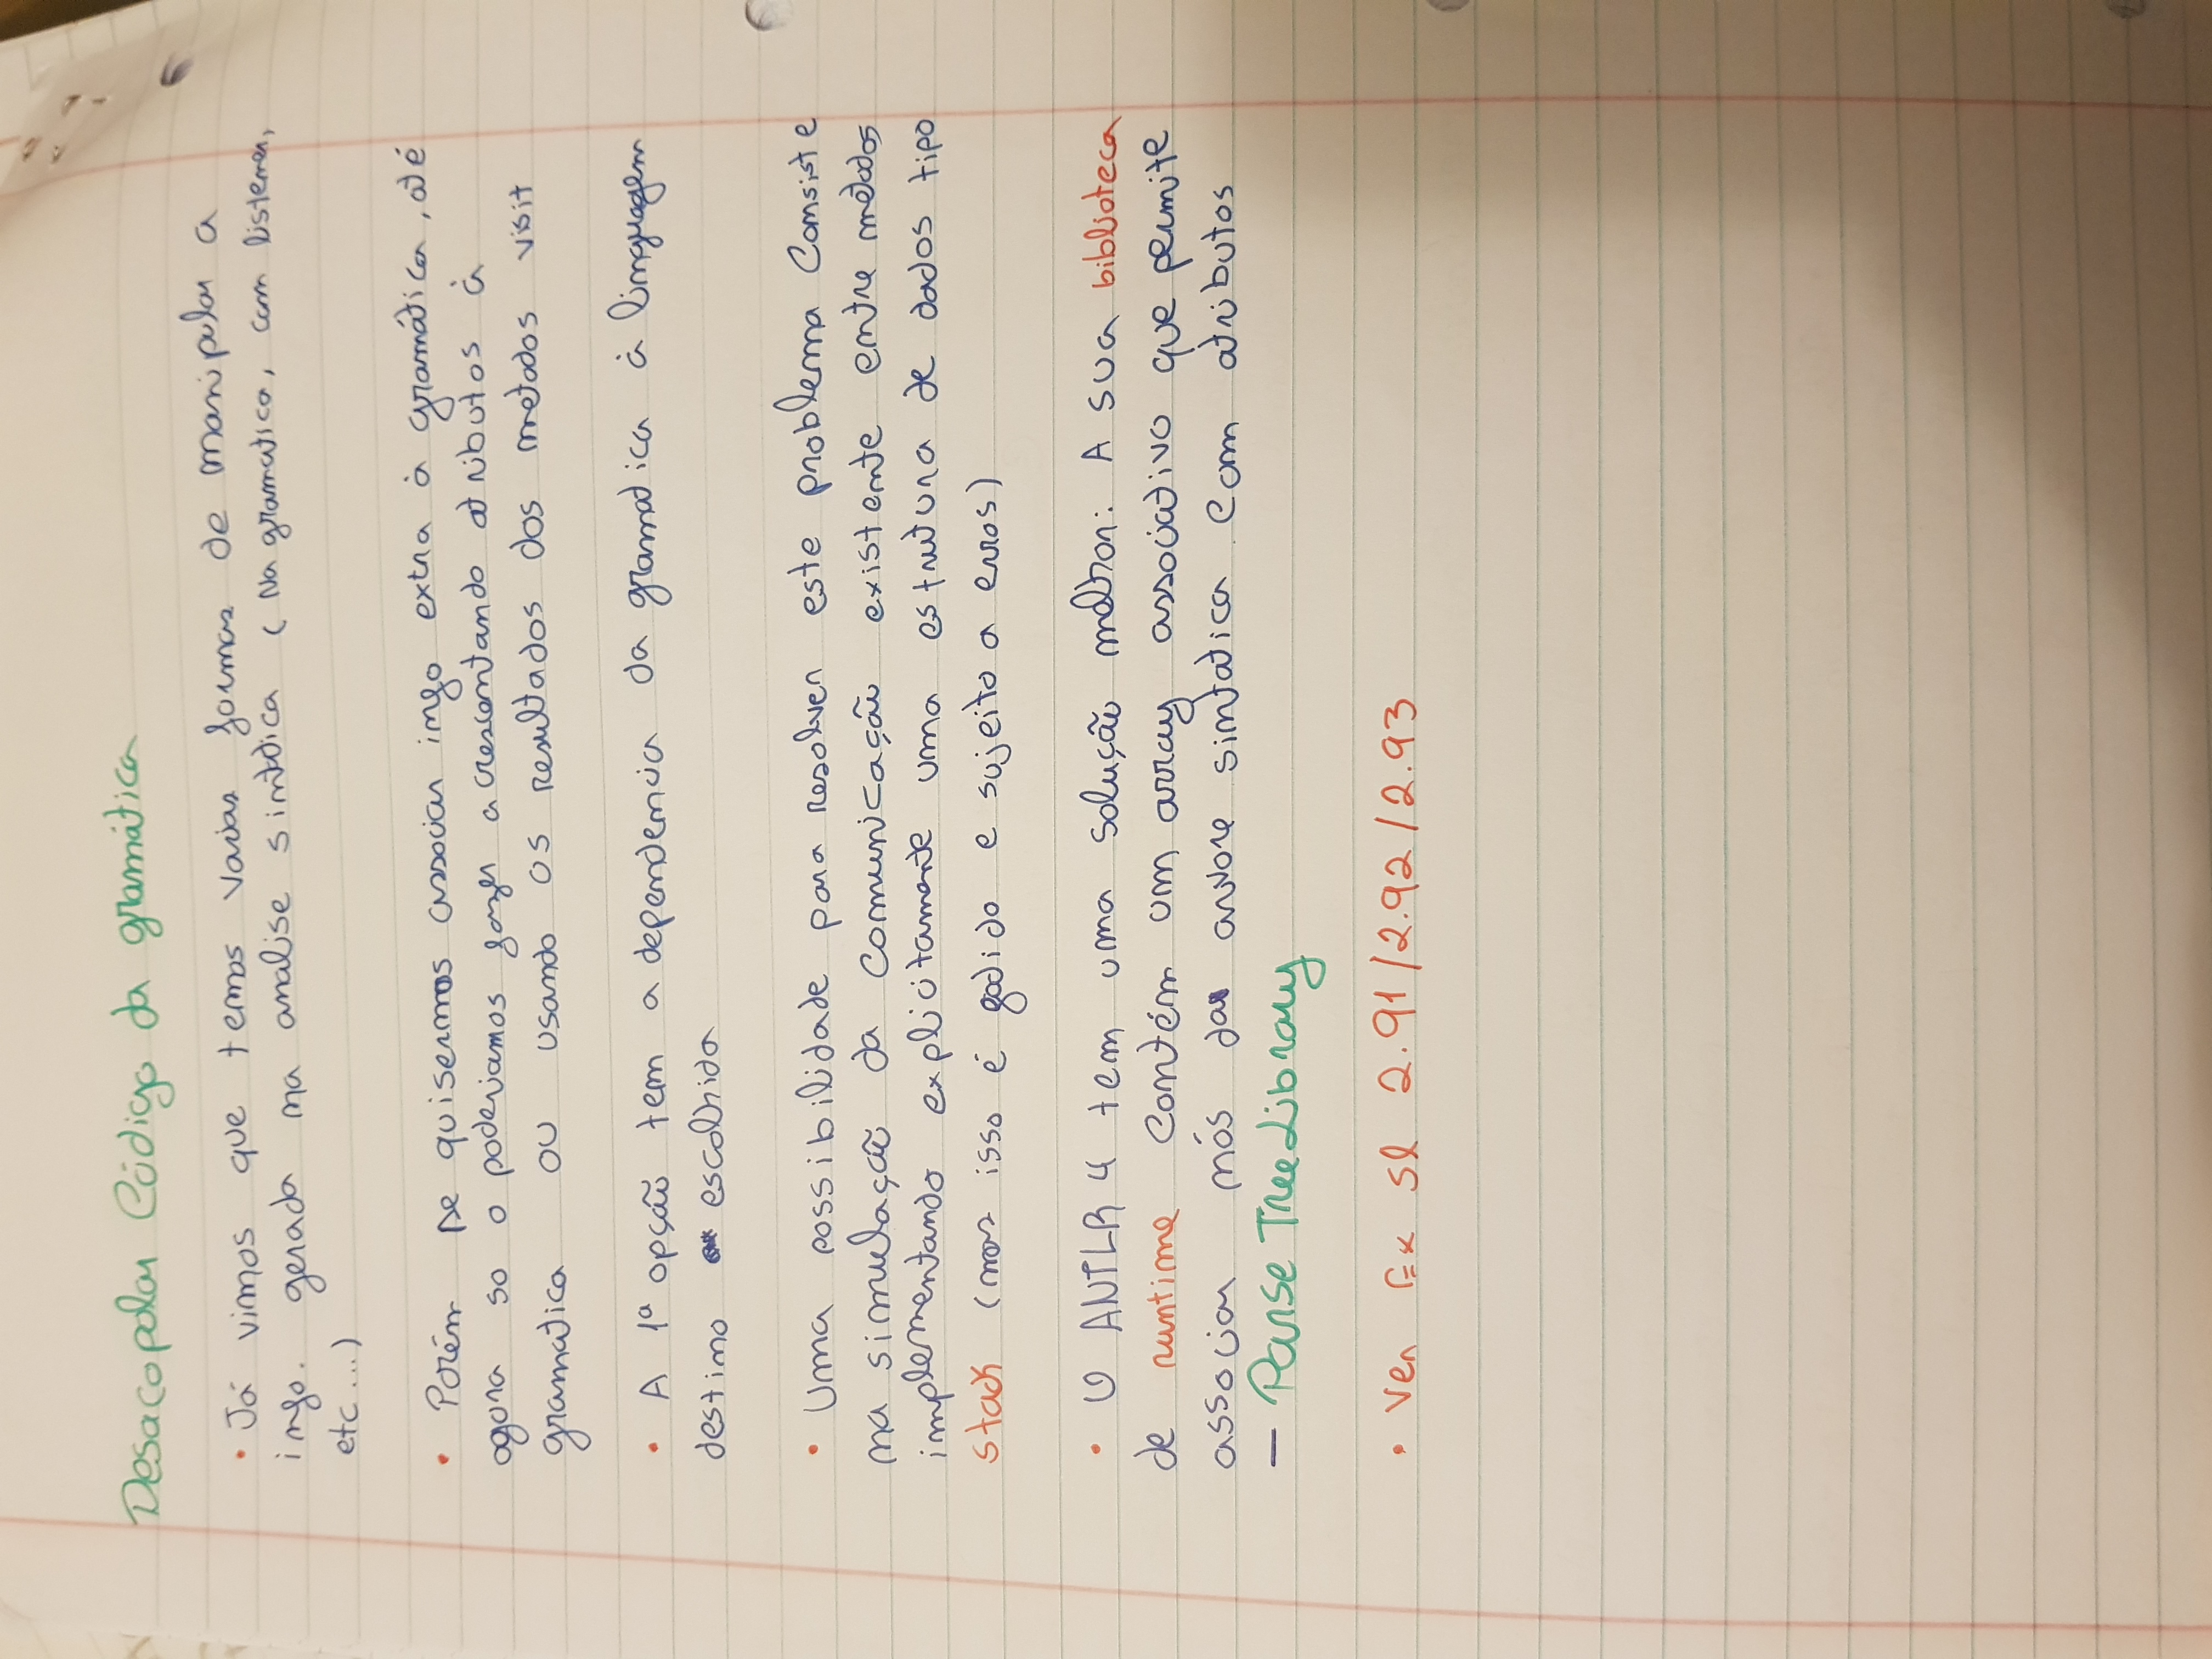 Desacopolar Código da gramática
• Já vimos que temos varias formas de manipular a
info. gerada na analise sintática (Na gramatica, com listener,
etc...)
• Porém se quisermos associar info extra à gramática, até
agora so o poderiamos fazer acrescentando atributos à
gramatica ou usando os resultados dos metodos visit
• A 1ª opção tem a dependencia da gramatica à linguagem
destino escolhida
• Uma possibilidade para resolver este problema Consiste
na simulação da comunicação existente entre métodos
implementando explicitamente uma estrutura de dados tipo
stack (mas isso é fodido e sujeito a erros)
• O ANTLR 4 tem uma solução melhor: A sua biblioteca
de runtime contém um array associativo que permite
associar nós da arvore sintatica com atributos
— Parse Tree Library
• Ver Ex sl 2.91/2.92/2.93